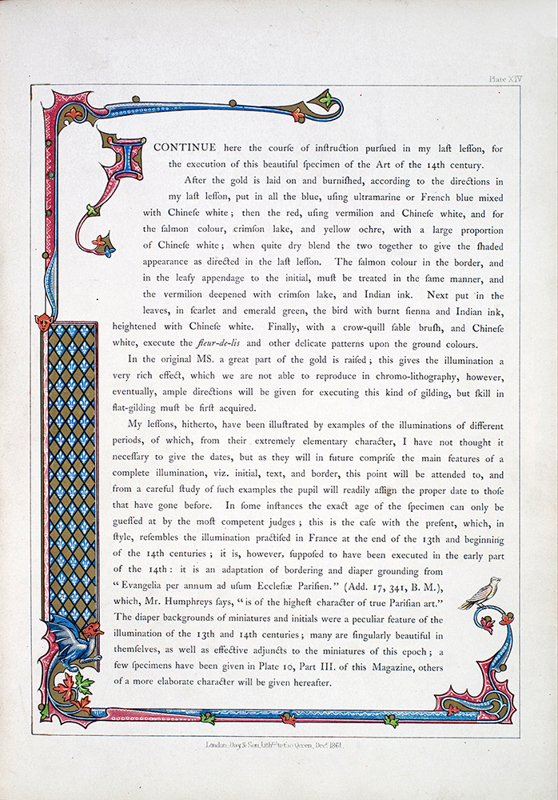 Plate XIV
I CONTINUE here the courſe of inſtruction purſued in my laſt leſſon, for
the execution of this beautiful ſpecimen of the Art of the 14th century.
After the gold is laid on and burniſhed, according to the directions in
my laſt leſſon, put in all the blue, uſing ultramarine or French blue mixed
with Chineſe white; then the red, uſing vermilion and Chineſe white, and for
the ſalmon colour, crimſon lake, and yellow ochre, with a large proportion
of Chineſe white; when quite dry blend the two together to give the ſhaded
appearance as directed in the laſt leſſon. The ſalmon colour in the border, and
in the leafy appendage to the initial, muſt be treated in the ſame manner, and
the vermilion deepened with crimſon lake, and Indian ink. Next put in the
leaves, in ſcarlet and emerald green, the bird with burnt ſienna and Indian ink,
heightened with Chineſe white. Finally, with a crow-quill ſable bruſh, and Chineſe
white, execute the fleur-de-lis and other delicate patterns upon the ground colours.
In the original MS. a great part of the gold is raiſed; this gives the illumination a
very rich effect, which we are not able to reproduce in chromo-lithography, however,
eventually, ample directions will be given for executing this kind of gilding, but ſkill in
flat-gilding muſt be firſt acquired.
My leſſons, hitherto, have been illuſtrated by examples of the illuminations of different
periods, of which, from their extremely elementary character, I have not thought it
neceſſary to give the dates, but as they will in future compriſe the main features of a
complete illumination, viz. initial, text, and border, this point will be attended to, and
from a careful ſtudy of ſuch examples the pupil will readily aſſign the proper date to thoſe
that have gone before. In ſome inſtances the exact age of the ſpecimen can only be
gueſſed at by the moſt competent judges; this is the caſe with the preſent, which, in
ſtyle, reſembles the illumination practiſed in France at the end of the 13th and beginning
of the 14th centuries; it is, however, ſuppoſed to have been executed in the early part
of the 14th: it is an adaptation of bordering and diaper grounding from
“Evangelia per annum ad uſum Eccleſiæ Pariſien.” (Add. 17, 341, B. M.),
which, Mr. Humphreys ſays, “is of the higheſt character of true Pariſian art.”
The diaper backgrounds of miniatures and initials were a peculiar feature of the
illumination of the 13th and 14th centuries; many are ſingularly beautiful in
themſelves, as well as effective adjuncts to the miniatures of this epoch; a
few ſpecimens have been given in Plate 10, Part III. of this Magazine, others
of a more elaborate character will be given hereafter.
London, Day & Son, Lithrs to the Queen, Decr 1861.